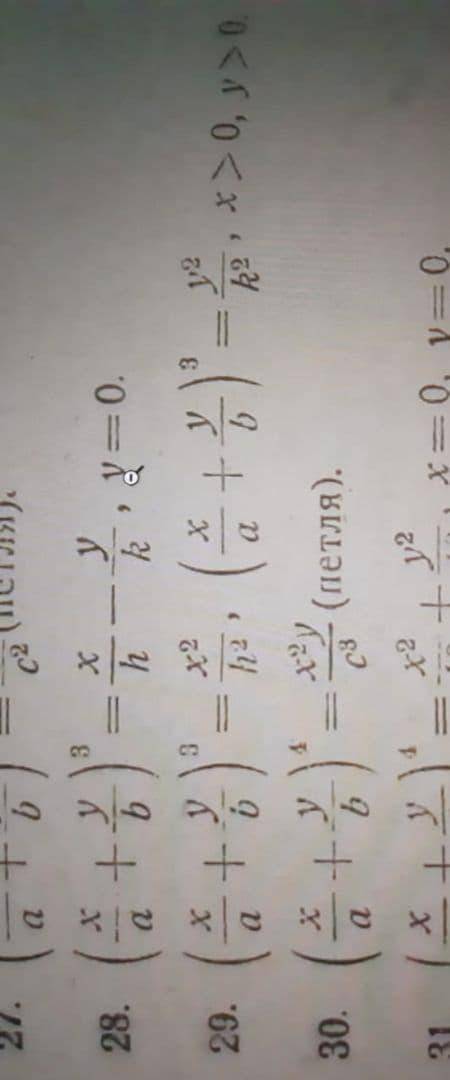 27. (—/a + —/b) = —/c² (петля).
28. (x/a + y/b)³ = x/h − y/k, y = 0.
29. (x/a + y/b)³ = x²/h², (x/a + y/b)³ = y²/k², x > 0, y > 0.
30. (x/a + y/b)⁴ = x²y/c³ (петля).
31. (x + y)⁴ = x² + y², x = 0, y = 0.